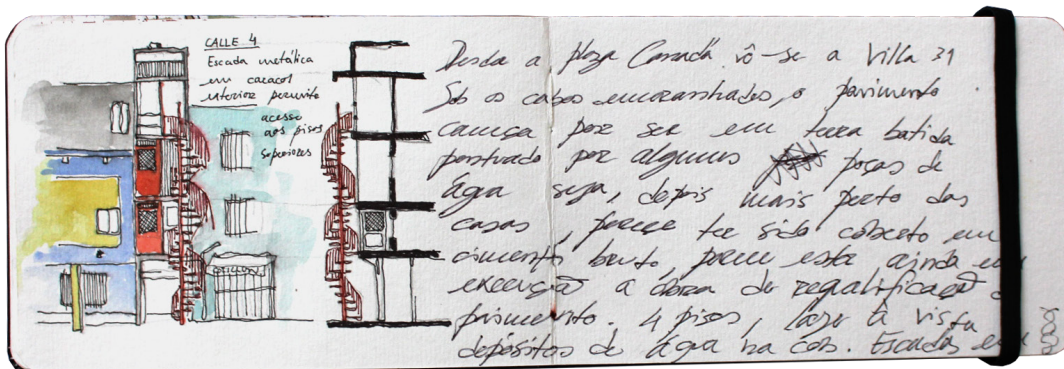 CALLE 4
Escada metálica
em caracol
interior permite
acesso
aos pisos
superiores
Desde a plaza Canadá vê-se a Villa 31
Sob os cabos emaranhados, o pavimento
começa por ser em terra batida
pontuado por algumas poças de
água suja, depois mais perto das
casas, parece ter sido coberto em
cimento bruto, parece estar ainda em
execução a obra de requalificação
pavimento. 4 pisos, laje à vista
depósitos de água na cob. Escadas em